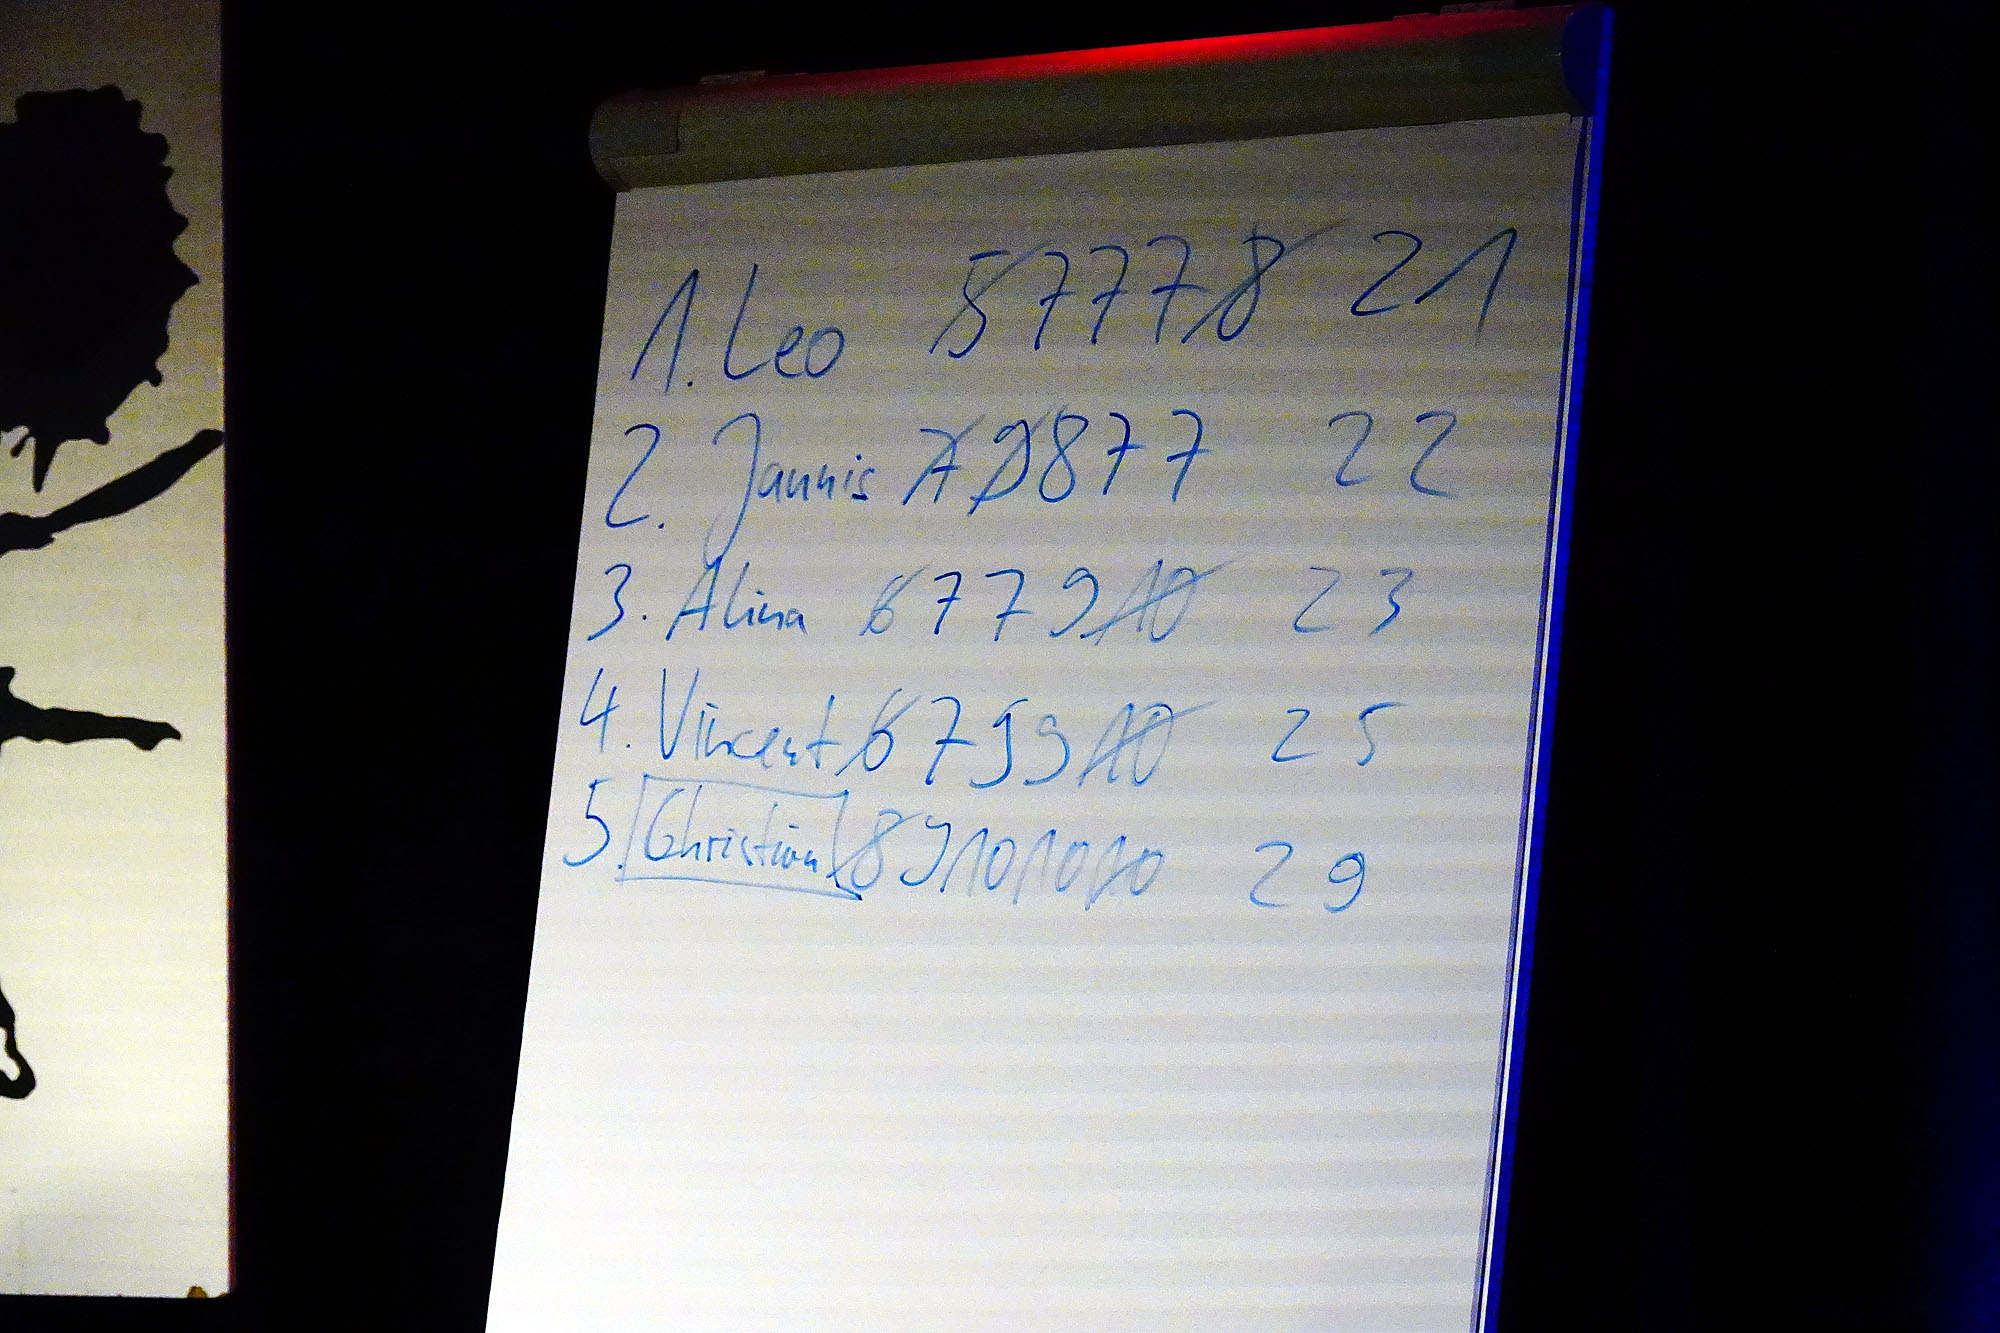 1. Leo 5 7 7 7 8 21
2. Jannis 7 9 8 7 7 22
3. Alina 6 7 7 9 10 23
4. Vincent 6 7 9 9 10 25
5. Christian 8 9 10 10 10 29